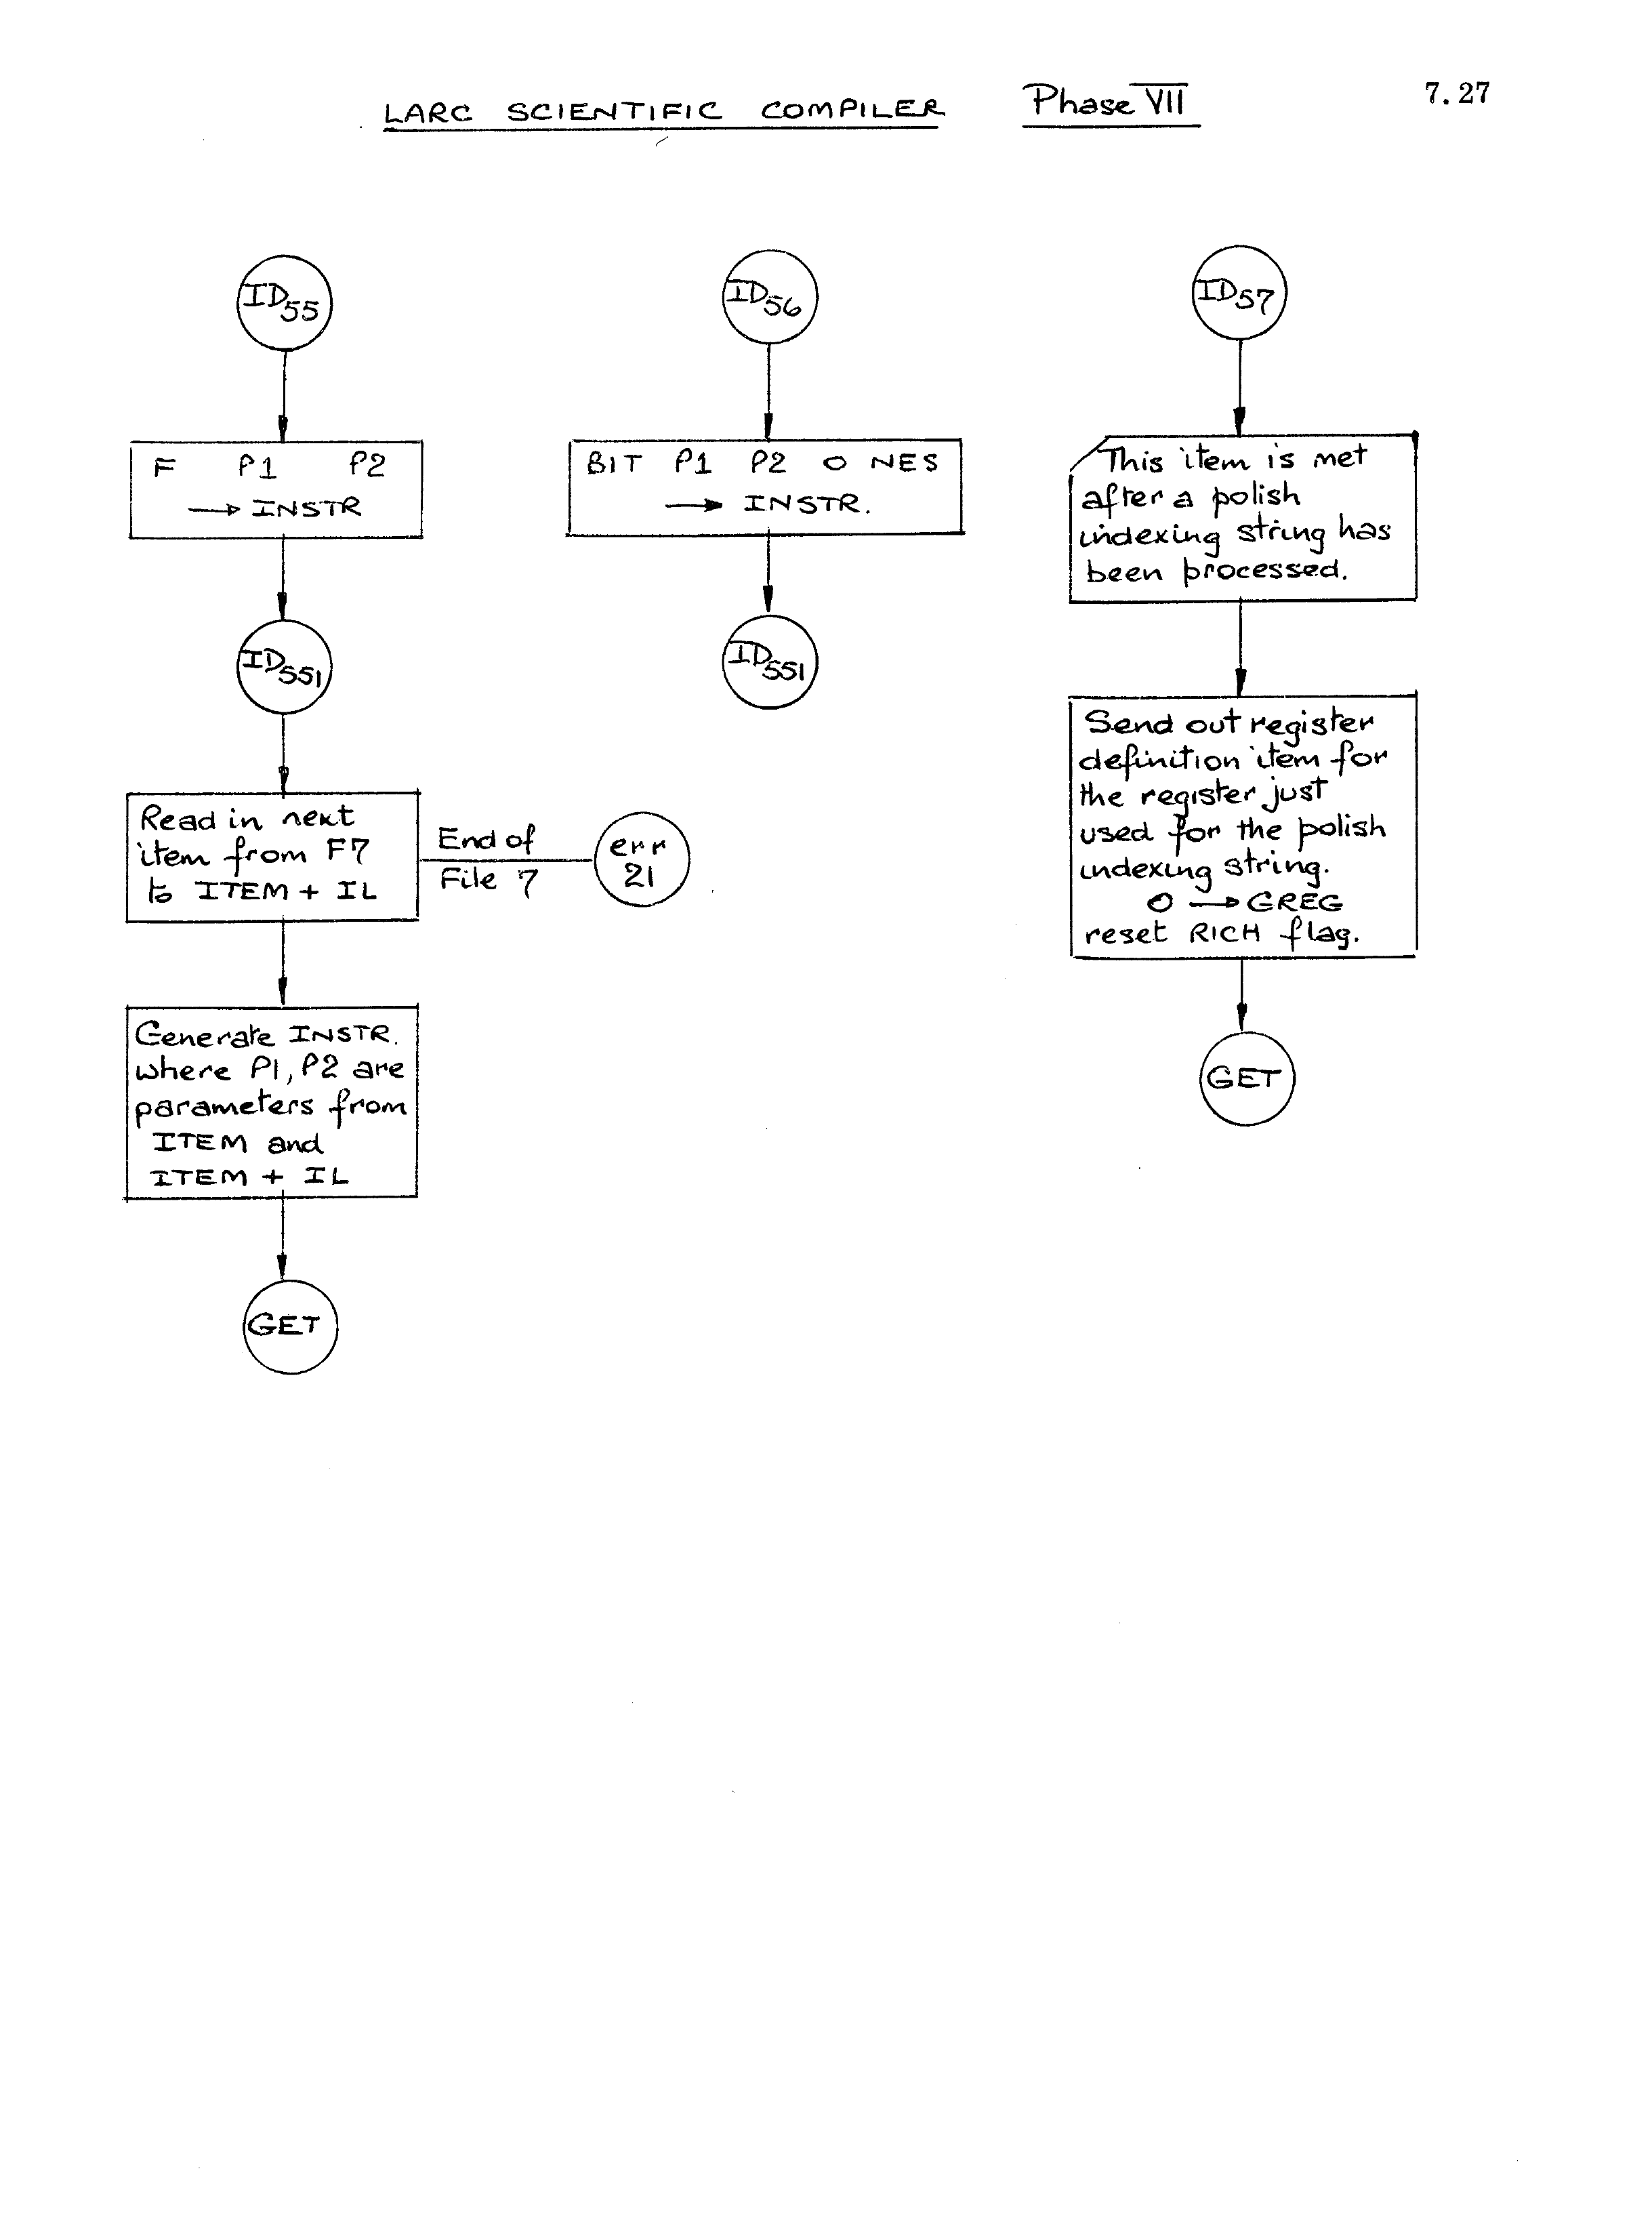 LARC SCIENTIFIC COMPILER Phase VII 7.27
ID55
F P1 P2
→ INSTR
ID551
Read in next
item from F7
to ITEM + IL
End of
File 7
err
21
Generate INSTR.
where P1, P2 are
parameters from
ITEM and
ITEM + IL
GET
ID56
BIT P1 P2 O NES
→ INSTR.
ID551
ID57
This item is met
after a polish
indexing string has
been processed.
Send out register
definition item for
the register just
used for the polish
indexing string.
O → GREG
reset RICH flag.
GET